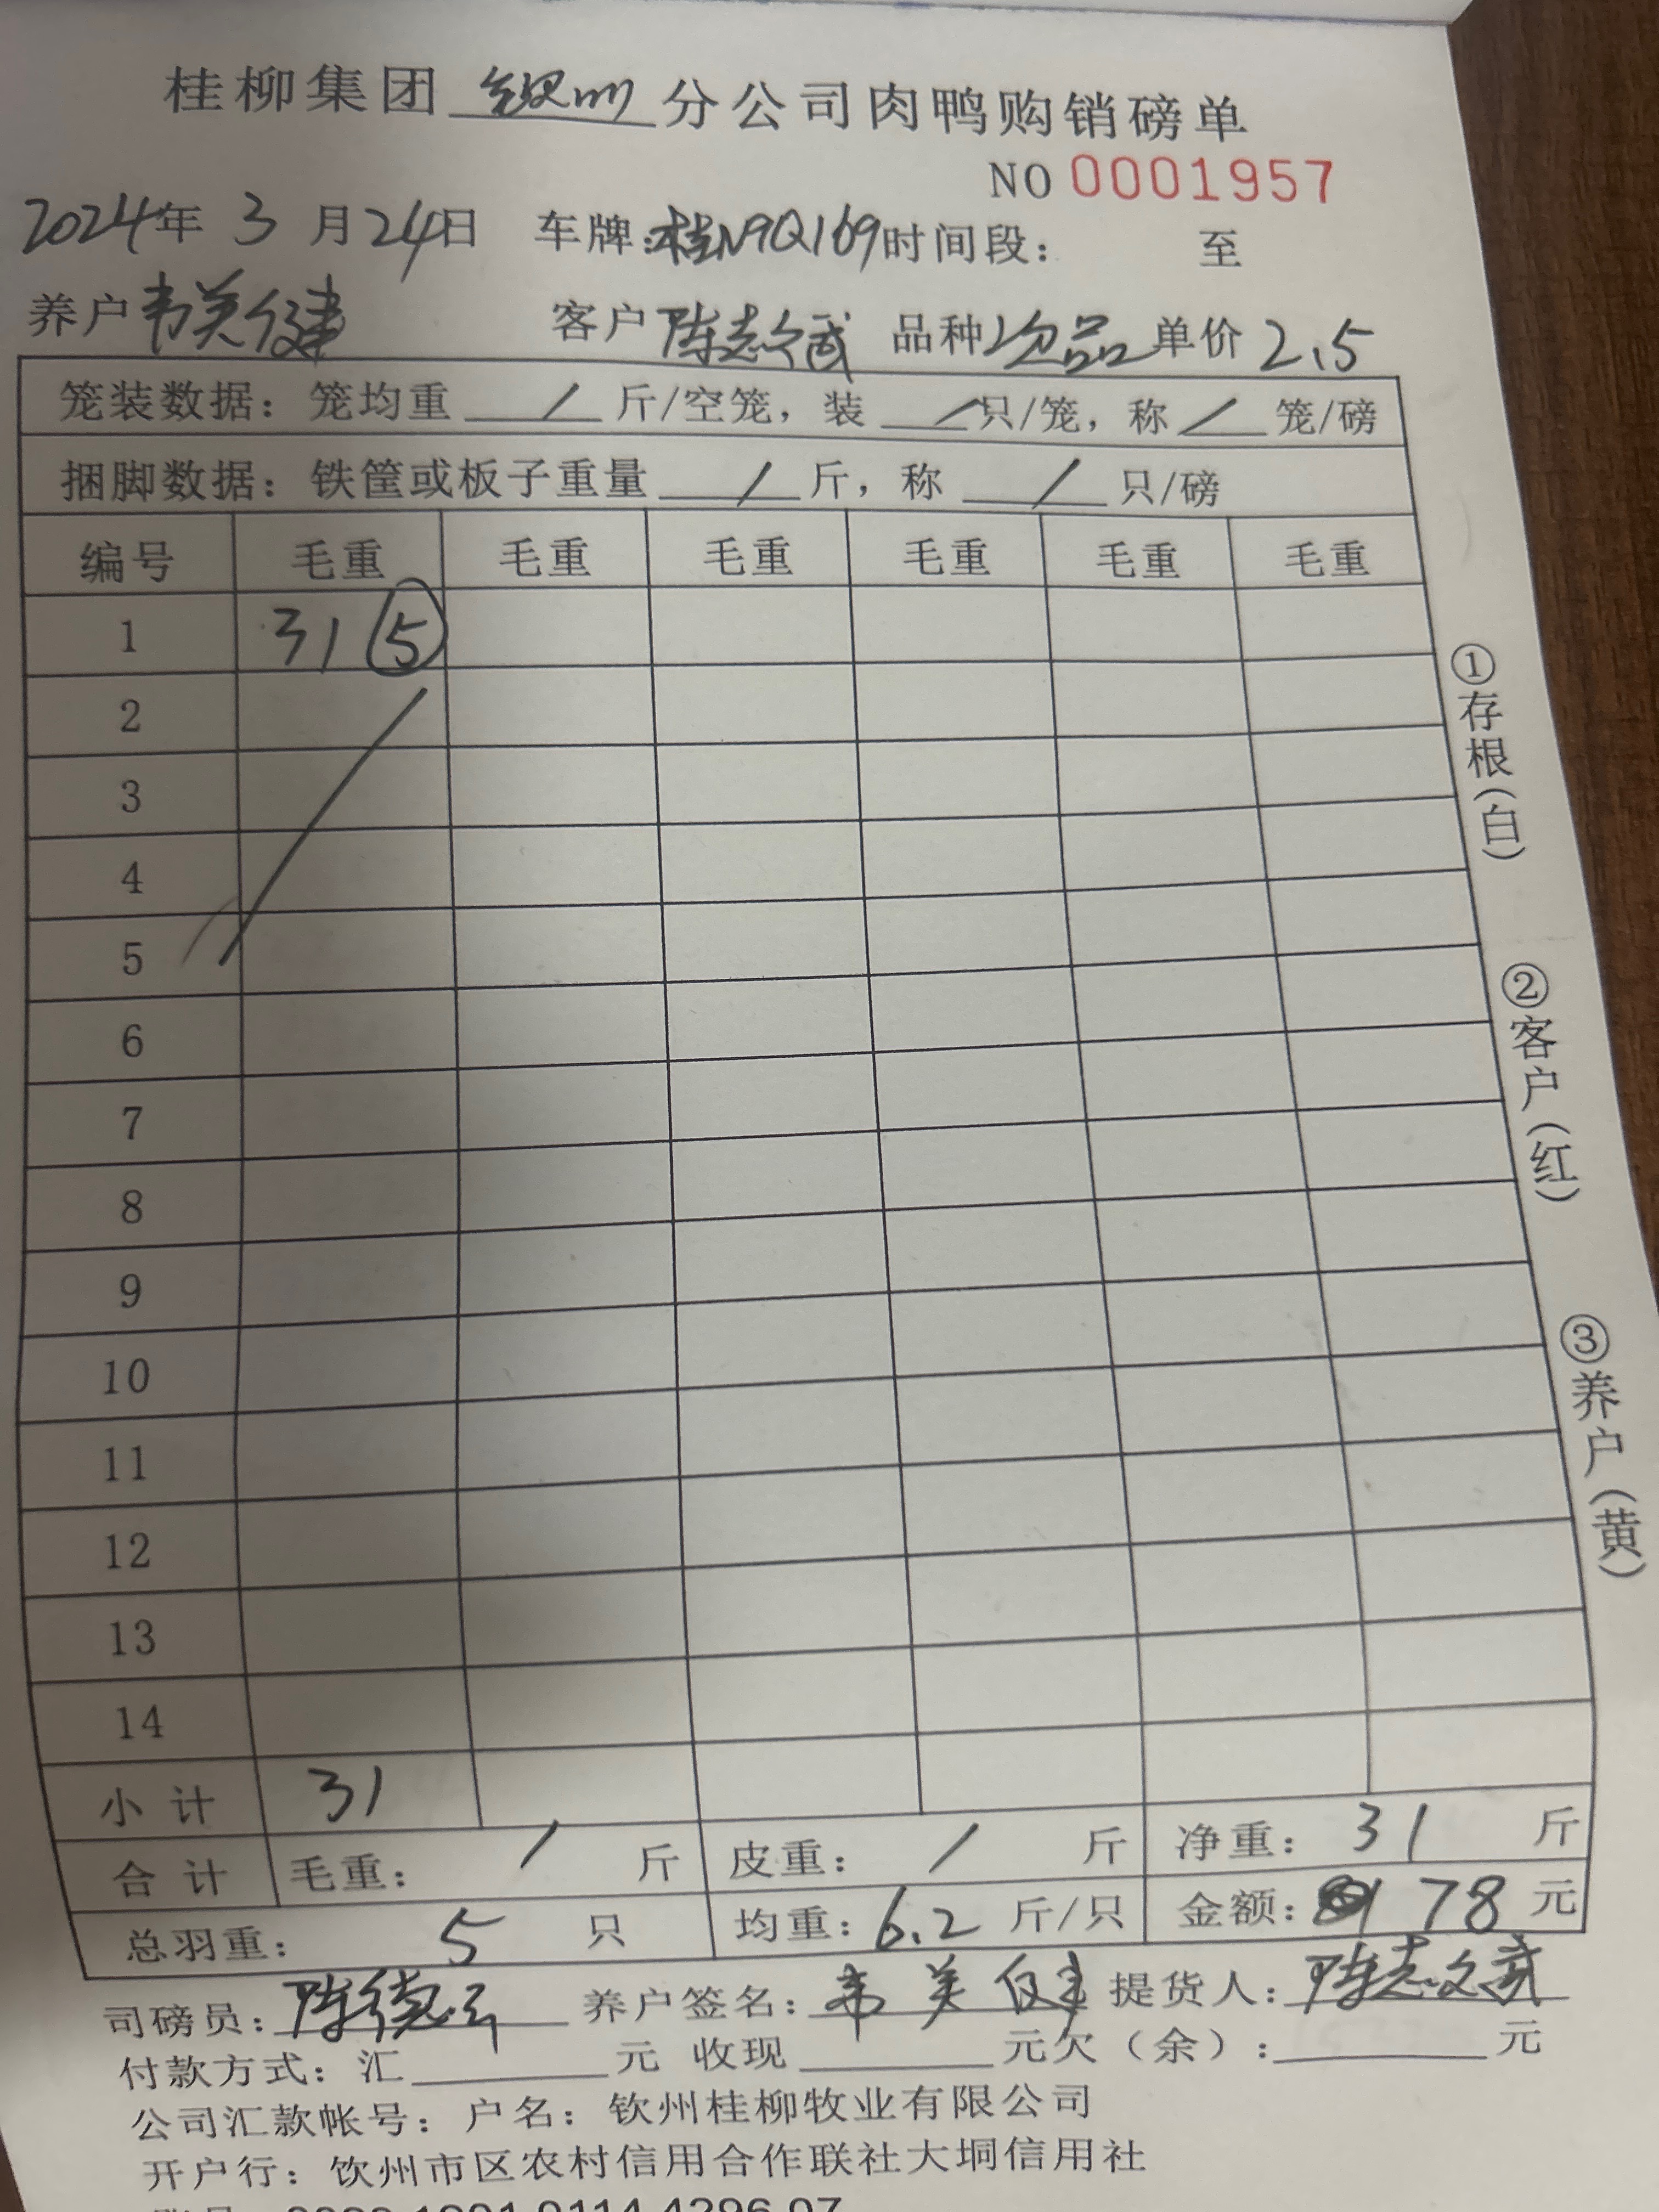 桂柳集团 钦州 分公司肉鸭购销磅单
NO 0001957
2024年 3 月 24日 车牌:桂N9Q169 时间段: 至
养户 韦美健 客户 陈志斌 品种 次品 单价 2.5
笼装数据: 笼均重 / 斤/空笼, 装 / 只/笼, 称 / 笼/磅
捆脚数据: 铁筐或板子重量 / 斤, 称 / 只/磅
编号 毛重 毛重 毛重 毛重 毛重 毛重
1 31 ⑤
2
3
4
5
6
7
8
9
10
11
12
13
14
小计 31
合计 毛重: / 斤 皮重: / 斤 净重: 31 斤
总羽重: 5 只 均重: 6.2 斤/只 金额: 78 元
司磅员: 陈德云 养户签名: 韦美健 提货人: 陈志斌
付款方式: 汇 元 收现 元欠(余): 元
公司汇款帐号: 户名: 钦州桂柳牧业有限公司
开户行: 钦州市区农村信用合作联社大垌信用社
①存根(白)
②客户(红)
③养户(黄)